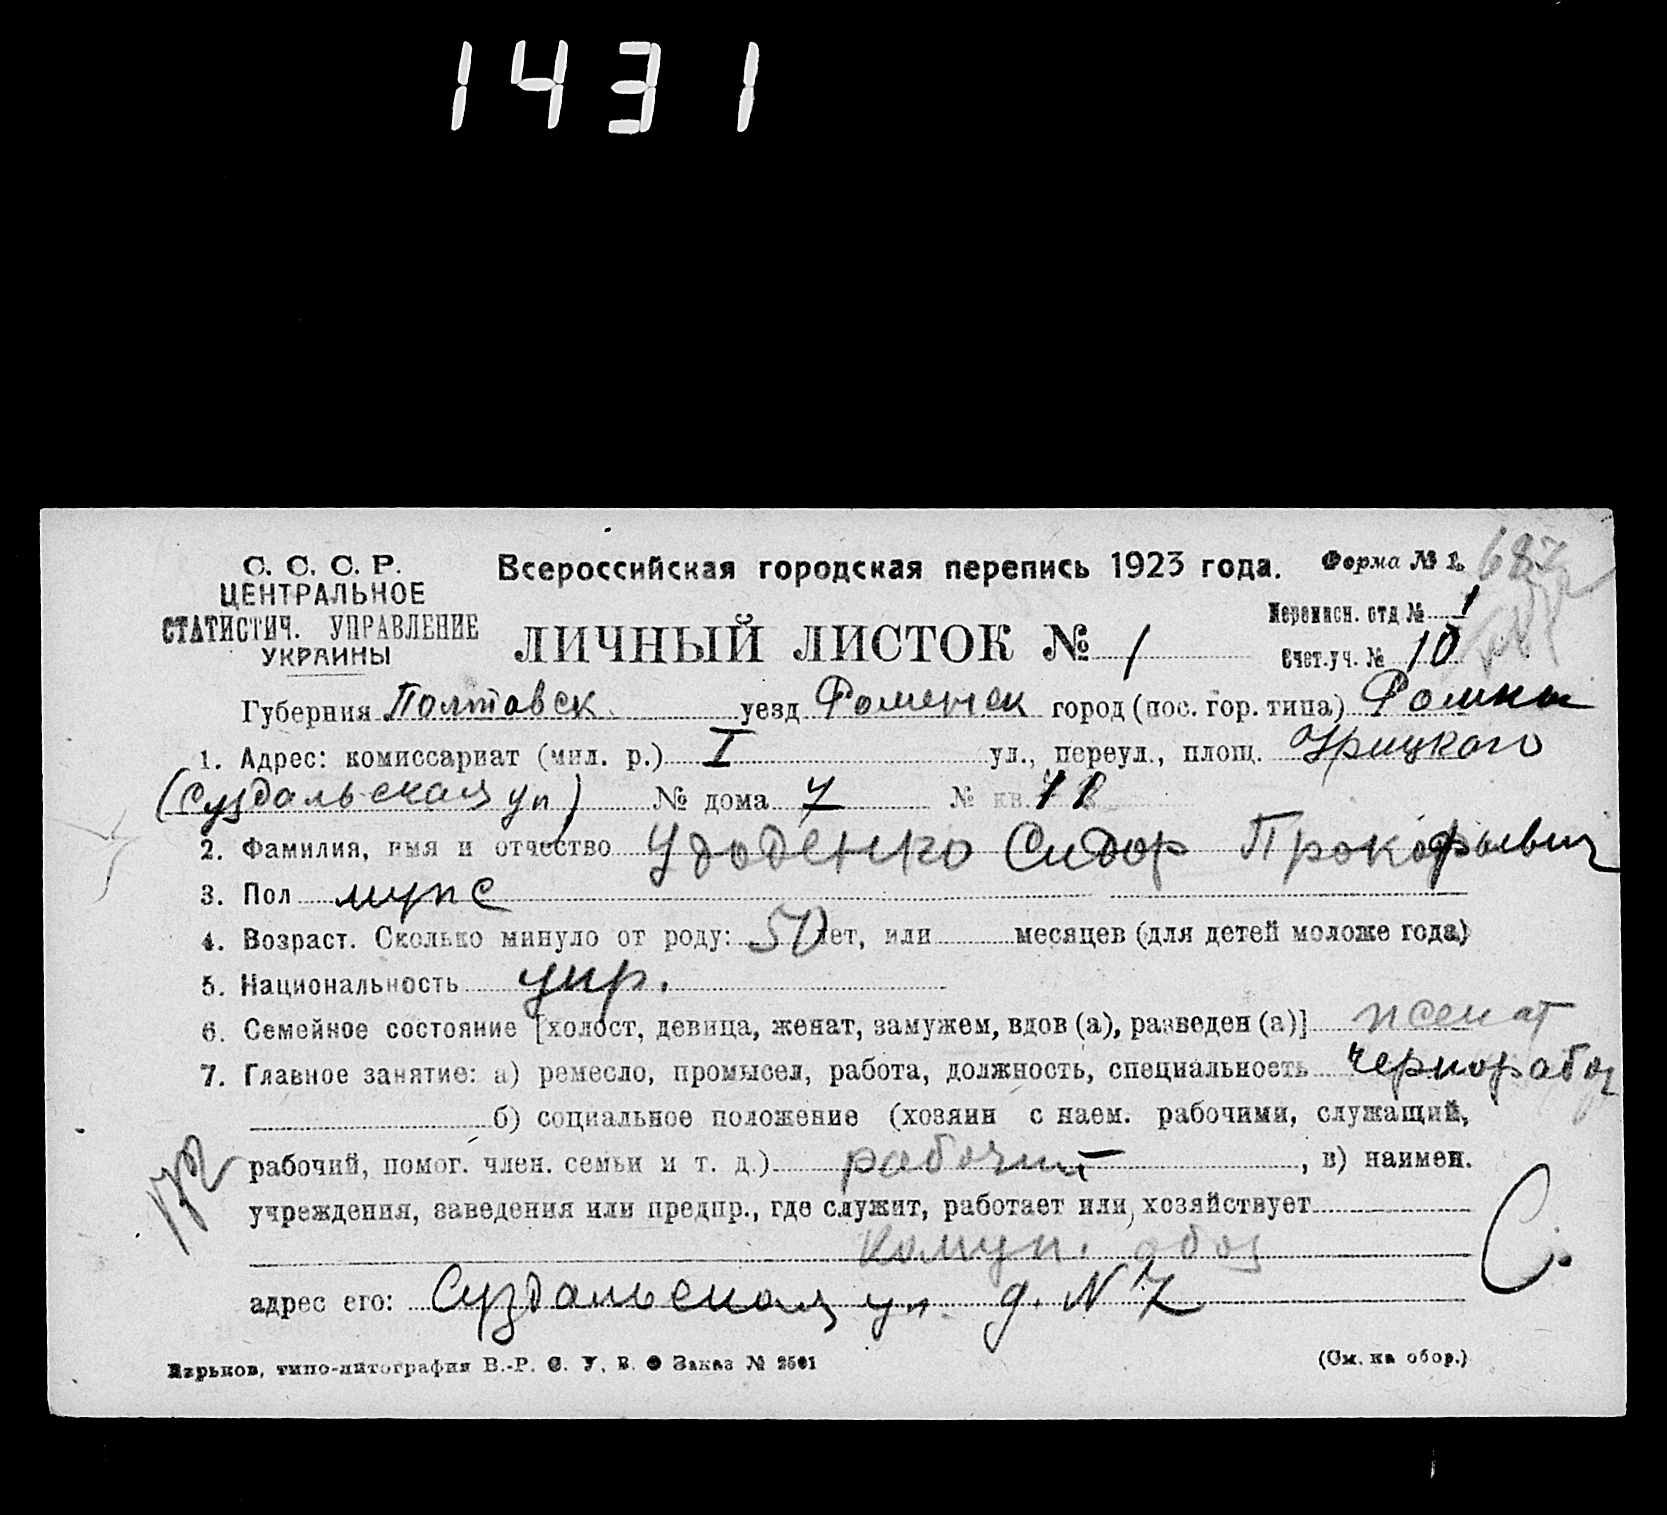 1431
С. С. С. Р.
ЦЕНТРАЛЬНОЕ
СТАТИСТИЧ. УПРАВЛЕНИЕ
УКРАИНЫ
Всероссийская городская перепись 1923 года.
Форма № 1.
ЛИЧНЫЙ ЛИСТОК № 1
Переписн. отд № 1
Счет. уч. № 10
Губерния Полтавск уезд Роменск город (пос. гор. типа) Ромны
1. Адрес: комиссариат (мил. р.) I ул., переул., площ. Урицкого
(Суздальская ул) № дома 7 № кв.
2. Фамилия, имя и отчество Удоденко Сидор Прокофьевич
3. Пол мужс
4. Возраст. Сколько минуло от роду: 50 лет, или месяцев (для детей моложе года)
5. Национальность укр.
6. Семейное состояние [холост, девица, женат, замужем, вдов (а), разведен (а)] женат
7. Главное занятие: а) ремесло, промысел, работа, должность, специальность чернорабоч
б) социальное положение (хозяин с наем. рабочими, служащий,
рабочий, помог. член. семьи и т. д.) рабочий, в) наимен.
учреждения, заведения или предпр., где служит, работает или хозяйствует
Комун. обоз
адрес его: Суздальская ул. д. N 7
С.
Харьков, типо-литография В.-Р. С. У. В. О Заказ № 2501
(См. на обор.)